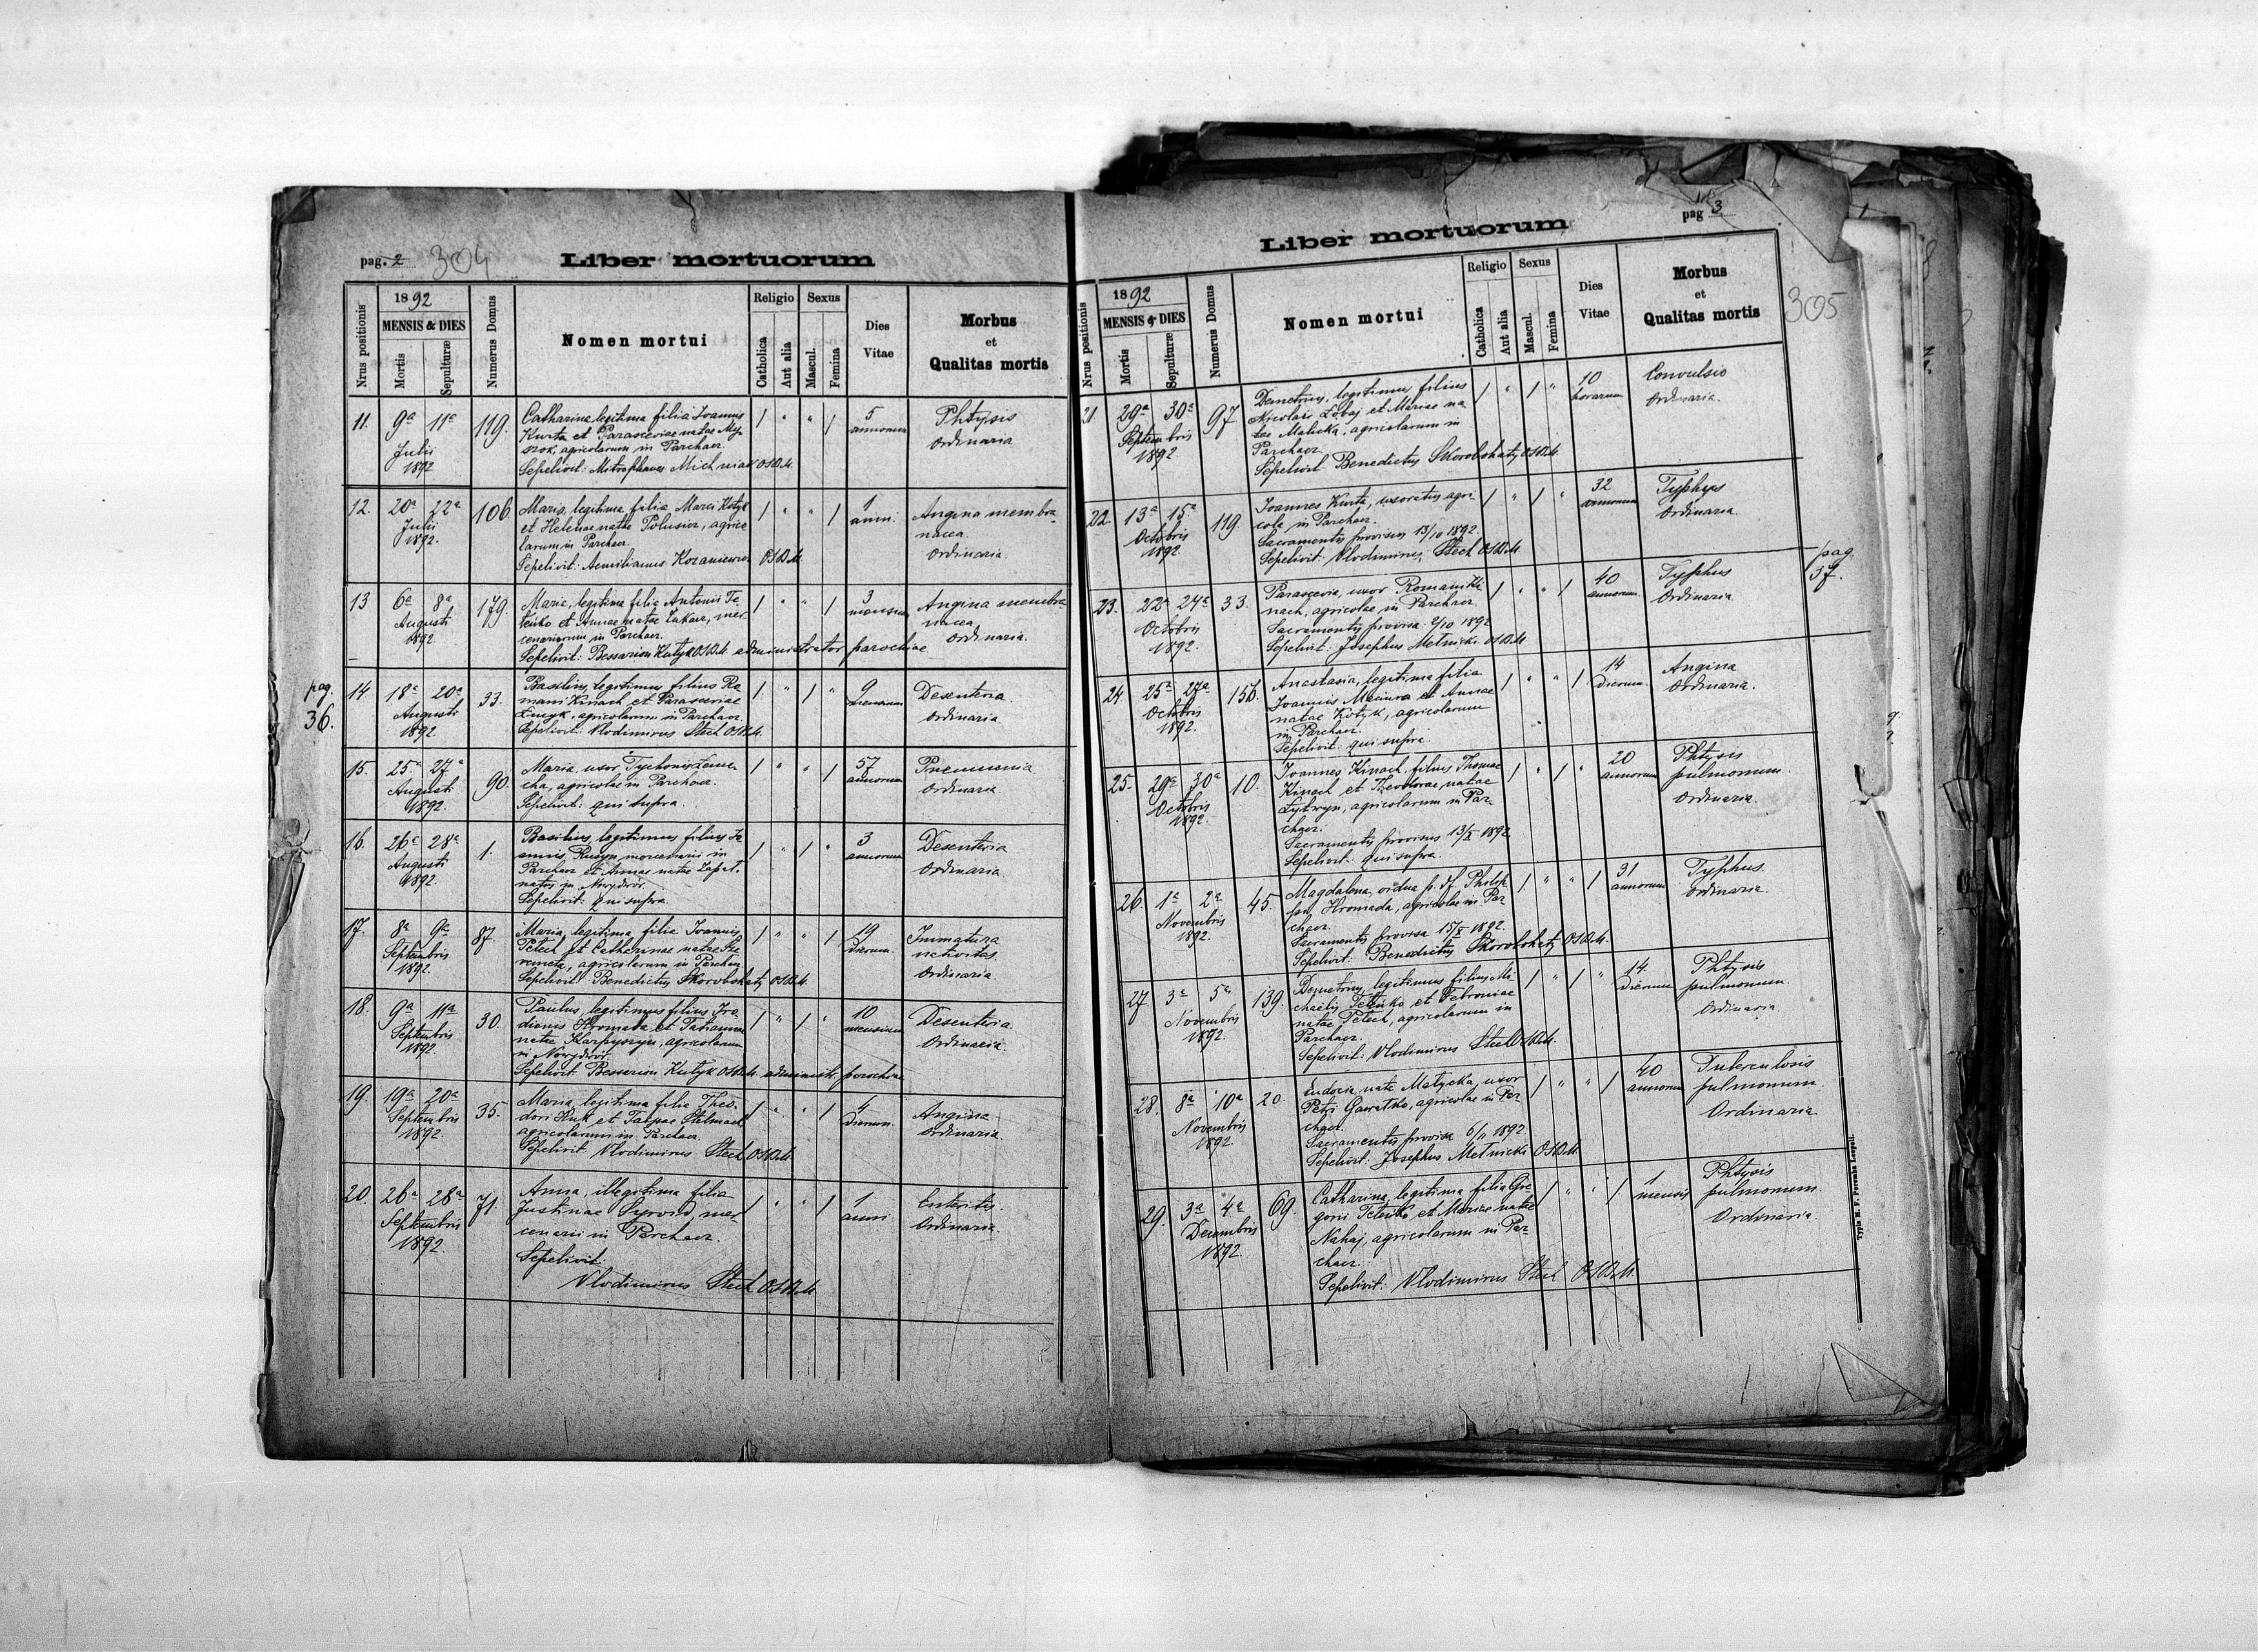 pag. 2 304
Liber mortuorum
Nrus positionis
1892
MENSIS & DIES
Mortis
Sepulturæ
Numerus Domus
Nomen mortui
Religio
Catholica
Aut alia
Sexus
Mascul.
Femina
Dies
Vitae
Morbus
et
Qualitas mortis
11. 9a 11a
Julii
1892
119.
Catharina, legitima filia Joannis
Kurta et Parasceviae natae
agricolarum in Parchacz.
Sepelivit: Mitrophanes Michniak OSBM.
1 " " 1
5
annorum
Phtysis
Ordinaria
12. 20a 22a
Julii
1892.
106
Maria, legitima filia Marci Kotyk
et Helenae natae Polusin, agrico
larum in Parchacz.
Sepelivit: Aemilianus OSBM.
1 " " 1
1
anni.
Angina membra
nacea.
Ordinaria.
13 6a 8a
Augusti
1892
179.
Maria, legitima filia Antonii Te
teńko et Annae natae mer
cenariorum in Parchacz.
Sepelivit: Bessarion Kutyk OSBM administrator parochiae
1 " " 1
3
mensium
Angina membra
nacea
Ordinaria.
pag.
36.
14 18a 20a
Augusti
1892
33.
Basilius, legitimus filius Ro
mani Kinach et Parasceviae
agricolarum in Parchacz.
Sepelivit: Vlodimirus Stech OSBM.
1 " 1 "
9
mensium
Desenteria
Ordinaria
15. 25a 27a
Augusti
1892.
90.
Maria, uxor Tychonis
cha, agricolae in Parchacz.
Sepelivit: qui supra.
1 " " 1
57
annorum
Pneumonia
Ordinaria
16. 26a 28a
Augusti
1892.
1.
Basilius, legitimus filius Jo
annis Rusyn, mercenarii in
Parchacz et Annae natae
natus in Nowydwór.
Sepelivit: qui supra.
1 " 1 "
3
annorum
Desenteria
Ordinaria
17. 8a 9a
Septembris
1892.
87.
Maria, legitima filia Joannis
Petech et Catharinae natae
agricolarum in Parchacz
Sepelivit Benedictus Skorobohaty OSBM.
1 " " 1
19
dierum.
Immatura
nativitas.
Ordinaria.
18. 9a 11a
Septembris
1892
30.
Paulus, legitimus filius Iro
dionis Hromada et Tatianna
natae Karpyszyn, agricolarum
in Nowydwór.
Sepelivit Bessarion Kutyk OSBM. administr. parochiae
1 " 1 "
10
mensium
Desenteria
Ordinaria.
19. 19a 20a
Septembris
1892.
35.
Maria, legitima filia Theo
dori Kuk et Stelmach
agricolarum in Parchacz
Sepelivit Vlodimirus Stech OSBM
1 " " 1
4
dierum.
Angina
Ordinaria
20. 26a 28a
Septembris
1892.
71.
Anna, illegitima filia
Justinae mer
cenarii in Parchacz.
Sepelivit:
Vlodimirus Stech OSBM
1 " " 1
1
anni
Enteritis.
Ordinaria.
pag 3
305
Liber mortuorum
Nrus positionis
1892
MENSIS & DIES
Mortis
Sepulturæ
Numerus Domus
Nomen mortui
Religio
Catholica
Aut alia
Sexus
Mascul.
Femina
Dies
Vitae
Morbus
et
Qualitas mortis
21 29a 30a
Septembris
1892.
97
Demetrius, legitimus filius
Nicolai Łobaj et Mariae na
tae Malicka, agricolarum in
Parchacz
Sepelivit Benedictus Skorobohaty OSBM.
1 " 1 "
10
horarum
Convulsio
Ordinaria.
22. 13a 15a
Octobris
1892
119
Joannes Kurta, uxoratus agri
cola in Parchacz.
Sacramentis provisus 13/10 1892.
Sepelivit: Vlodimirus, Stech OSBM.
1 " 1 "
32
annorum
Typhus
Ordinaria.
pag.
37.
23. 22a 24a
Octobris
1892.
33.
Parascevia, uxor Romani Ki
nach, agricolae in Parchacz
Sacramentis provisa 1892
Sepelivit: Josephus Melnicki OSBM
1 " " 1
40
annorum.
Typhus
Ordinaria.
24. 25a 27a
Octobris
1892.
156.
Anastasia, legitima filia
Joannis Maciura et Annae
natae Kotyk, agricolarum
in Parchacz.
Sepelivit: qui supra.
1 " " 1.
14
dierum.
Angina
Ordinaria.
25. 29a 30a
Octobris
1892.
10.
Joannes Kinach filius Thomae
Kinach et Theodorae natae
agricolarum in Par
chacz.
Sacramentis provisus 13/X 1892
Sepelivit: qui supra.
1 " 1 "
20
annorum
Phtysis
pulmonum.
Ordinaria.
26. 1a 2a
Novembris
1892.
45.
Magdalena, vidua p. df. Philip
pi Hromada, agricolae in Par
chacz.
Sacramentis provisa 15/X 1892.
Sepelivit: Benedictus Skorobohaty OSBM.
1 " " 1
31
annorum
Typhus.
Ordinaria.
27. 3a 5a
Novembris
1892.
139.
Demetrius, legitimus filius Mi
chaëlis Teteńko et Petroniae
natae Petech, agricolarum in
Parchacz.
Sepelivit: Vlodimirus Stech OSBM.
1 " 1 "
14
dierum
Phtysis
pulmonum.
Ordinaria.
28. 8a 10a
Novembris
1892.
20.
Eudocia, nata Matycka, uxor
Petri Gawratko, agricolae in Par
chacz.
Sacramentis provisa 6/11 1892.
Sepelivit: Josephus Melnicki OSBM
1 " " 1
40
annorum
Tuberculosis
pulmonum
Ordinaria
29. 3a 4a
Decembris
1892.
69.
Catharina, legitima filia Gre
gorii Teteńko et Mariae natae
Nahaj, agricolarum in Par
chacz.
Sepelivit: Vlodimirus Stech OSBM.
1 " " 1
1
mensis
Phtysis
pulmonum.
Ordinaria.
Typis M. F. Poremba Leopoli.